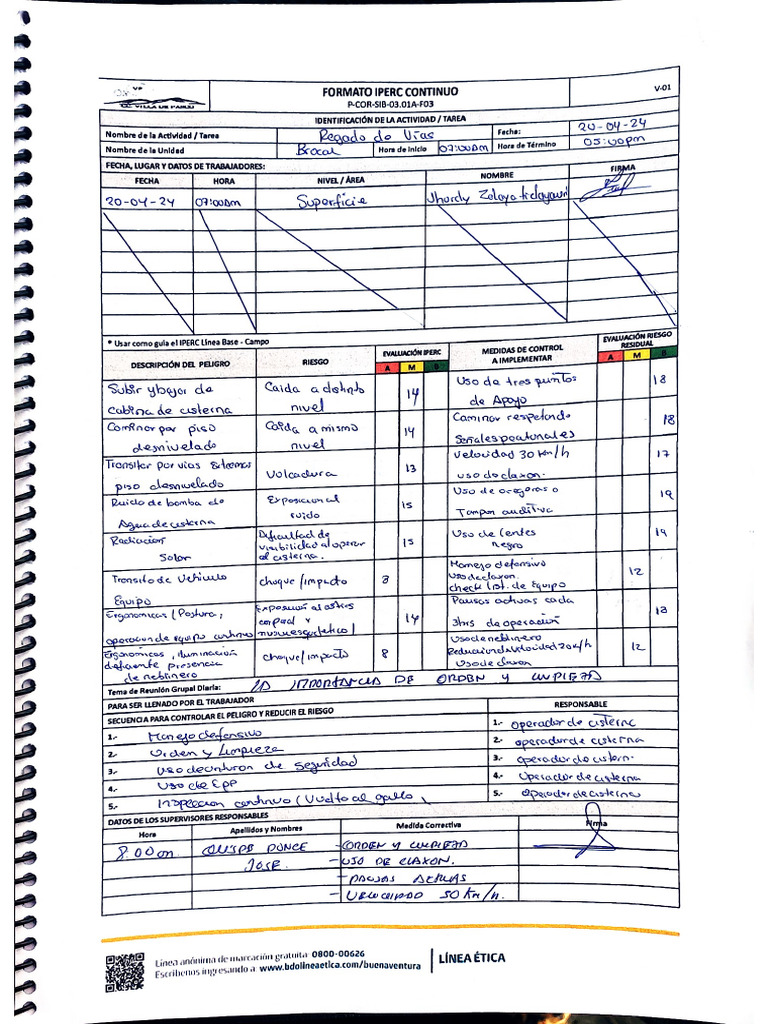 VP
CC. VILLA DE PASCO
FORMATO IPERC CONTINUO
P-COR-SIB-03.01A-F03
V-01
IDENTIFICACIÓN DE LA ACTIVIDAD / TAREA
Nombre de la Actividad / Tarea Regado de Vias Fecha: 20-04-24
Nombre de la Unidad Brocal Hora de Inicio 07:00am Hora de Término 05:00pm
FECHA, LUGAR Y DATOS DE TRABAJADORES:
FECHA HORA NIVEL / ÁREA NOMBRE FIRMA
20-04-24 07:00am Superficie Jhordy Zelaya
* Usar como guia el IPERC Línea Base - Campo
DESCRIPCIÓN DEL PELIGRO RIESGO EVALUACIÓN IPERC MEDIDAS DE CONTROL A IMPLEMENTAR EVALUACIÓN RIESGO RESIDUAL
A M B A M B
Subir y bajar de Caida a distinto 14 Uso de tres puntos 18
cabina de cisterna nivel de Apoyo
Caminar por piso Caida a mismo 14 Caminar respetando 18
desnivelado nivel Señales peatonales
Transitar por vias piso desnivelado Volcadura 13 Velocidad 30 km/h 17
uso de claxon.
Ruido de bomba de Exposicion al 15 Uso de orejeras o 19
Agua de cisterna ruido Tampon auditivo
Radiacion Dificultad de 15 Uso de Lentes 19
Solar visibilidad al operar negro
el cisterna.
Transito de Vehiculo choque/impacto 8 Manejo defensivo 12
Equipo Uso de claxon.
check list. de Equipo
Ergonomicas / Postura, Exposicion al estres 14 Pausas activas cada 18
operacion de equipo continuo corporal y musculo esqueletico / 3hrs de operación
Ergonomicas, iluminación choque/impacto 8 Uso de neblinero 12
deficiente presencia Reduccion de velocidad 20k/h
de neblinero Uso de claxon
Tema de Reunión Grupal Diaria: LA IMPORTANCIA DE ORDEN Y LIMPIEZA
PARA SER LLENADO POR EL TRABAJADOR
SECUENCIA PARA CONTROLAR EL PELIGRO Y REDUCIR EL RIESGO RESPONSABLE
1.- Manejo defensivo 1.- operador de cisterna
2.- Orden y Limpieza 2.- operador de cisterna
3.- Uso de cinturon de Seguridad 3.- operador de cistern.
4.- Uso de EPP 4.- Operador de cisterna
5.- Inspeccion continuo (Vuelta al gallo, 5.- Operador de cisterna
DATOS DE LOS SUPERVISORES RESPONSABLES
Hora Apellidos y Nombres Medida Correctiva Firma
8:00am. QUISPE PONCE - ORDEN Y LIMPIEZA
JOSE. - USO DE CLAXON.
- PAUSAS ACTIVAS
- VELOCIDAD 30 Km/h.
Línea anónima de marcación gratuita 0800-00626
Escríbenos ingresando a www.bdolineaetica.com/buenaventura
LÍNEA ÉTICA